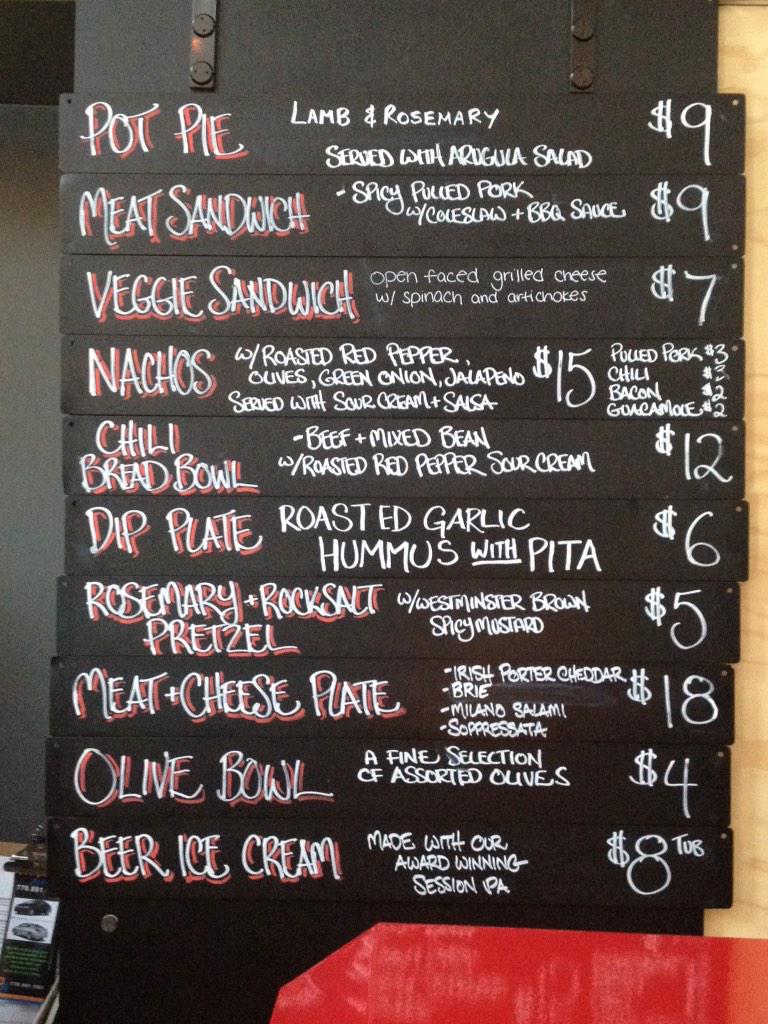 POT PIE LAMB & ROSEMARY $9
SERVED WITH ARUGULA SALAD
MEAT SANDWICH - SPICY PULLED PORK $9
W/COLESLAW + BBQ SAUCE
VEGGIE SANDWICH open faced grilled cheese $7
w/ spinach and artichokes
NACHOS W/ROASTED RED PEPPER, $15 PULLED PORK $3
OLIVES, GREEN ONION, JALAPENO CHILI $3
SERVED WITH SOUR CREAM + SALSA BACON $2
GUACAMOLE $2
CHILI - BEEF + MIXED BEAN $12
BREAD BOWL W/ROASTED RED PEPPER SOUR CREAM
DIP PLATE ROASTED GARLIC $6
HUMMUS WITH PITA
ROSEMARY + ROCKSALT W/WESTMINSTER BROWN $5
PRETZEL SPICY MUSTARD
MEAT + CHEESE PLATE - IRISH PORTER CHEDDAR $18
- BRIE
- MILANO SALAMI
- SOPPRESSATA
OLIVE BOWL A FINE SELECTION $4
OF ASSORTED OLIVES
BEER ICE CREAM MADE WITH OUR $8 TUB
AWARD WINNING
SESSION IPA